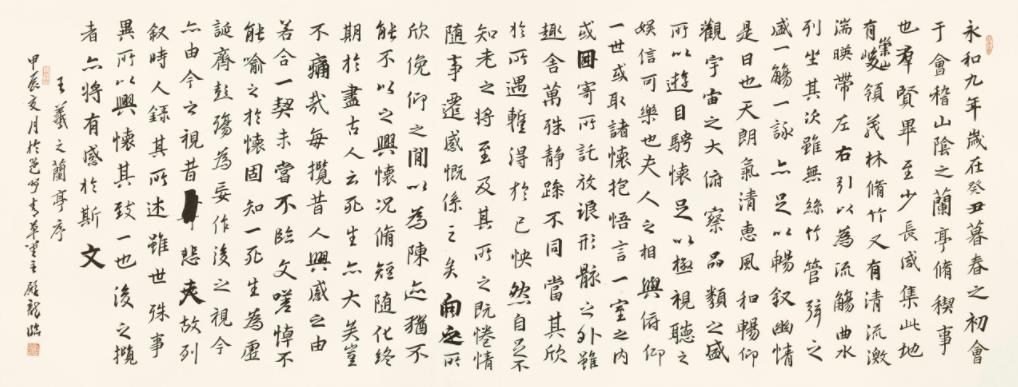 永和九年歲在癸丑暮春之初會
于會稽山陰之蘭亭脩稧事
也羣賢畢至少長咸集此地
有崇山峻領茂林脩竹又有清流激
湍暎帶左右引以為流觴曲水
列坐其次雖無絲竹管弦之
盛一觴一詠亦足以暢叙幽情
是日也天朗氣清惠風和暢仰
觀宇宙之大俯察品類之盛
所以遊目騁懷足以極視聽之
娛信可樂也夫人之相與俯仰
一世或取諸懷抱悟言一室之內
或因寄所託放浪形骸之外雖
趣舍萬殊静躁不同當其欣
於所遇蹔得於己怏然自足不
知老之將至及其所之既惓情
隨事遷感慨係之矣向之所
欣俛仰之閒以為陳迹猶不
能不以之興懷況脩短隨化終
期於盡古人云死生亦大矣豈
不痛哉每攬昔人興感之由
若合一契未嘗不臨文嗟悼不
能喻之於懷固知一死生為虛
誕齊彭殤為妄作後之視今
亦由今之視昔悲夫故列
叙時人錄其所述雖世殊事
異所以興懷其致一也後之攬
者亦將有感於斯文
王羲之蘭亭序
甲辰夏月於青草堂主龍臨